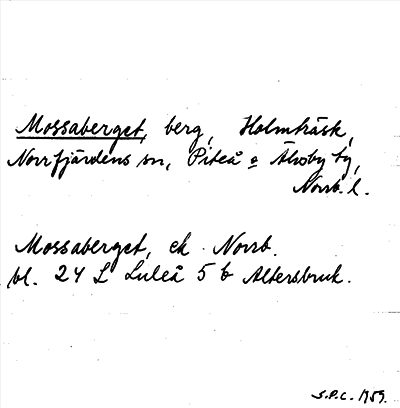 Mossaberget, berg, Holmträsk,
Norrfjärdens sn, Piteå o Älvsby tg,
Norrb. l.
Mossaberget, ek Norrb.
bl. 24 L Luleå 5 b Altersbruk.
S.P.C. 1959.